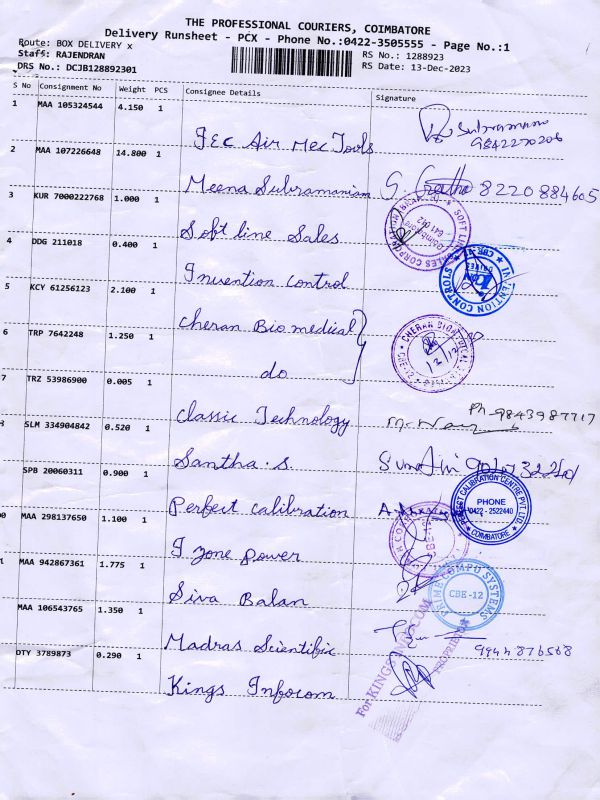 THE PROFESSIONAL COURIERS, COIMBATORE
Delivery Runsheet - PCX - Phone No.:0422-3505555 - Page No.:1
Route: BOX DELIVERY x
Staff: RAJENDRAN
DRS No.: DCJB128892301
RS No.: 1288923
RS Date: 13-Dec-2023
S No Consignment No Weight PCS Consignee Details Signature
1 MAA 105324544 4.150 1 Subramani
JEC Air Mec Tools 9842270206
2 MAA 107226648 14.800 1
Meena Subramaniam G. Geetha 8220884605
3 KUR 7000222768 1.000 1
Soft line Sales
4 DDG 211018 0.400 1
Invention control
5 KCY 61256123 2.100 1
Cheran Biomedical
6 TRP 7642248 1.250 1
do 12/12
7 TRZ 53986900 0.005 1
Classic Technology Ph-9843987717
8 SLM 334904842 0.520 1
Santha.S.
SPB 20060311 0.900 1
Perfect calibration
PERFECT CALIBRATION CENTRE PVT LTD.
PHONE
0422 - 2522440
COIMBATORE
MAA 298137650 1.100 1
I zone power
MAA 942867361 1.775 1
Siva Balan
COMPU SYSTEMS
CBE-12
MAA 106543765 1.350 1
Madras Scientific
DTY 3789873 0.290 1
Kings Infocom
For KINGS INFOCOM
PROPRIETOR